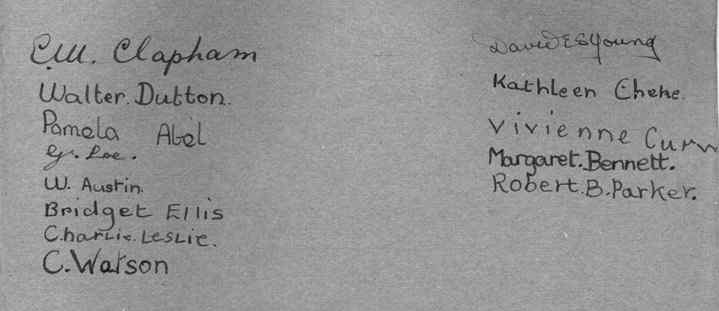 C.M. Clapham
Walter. Dutton.
Pamela Abel
W. Austin.
Bridget Ellis
Charlie. Leslie.
C. Watson
David E S Young
Kathleen
Vivienne Curw
Margaret. Bennett.
Robert. B. Parker.